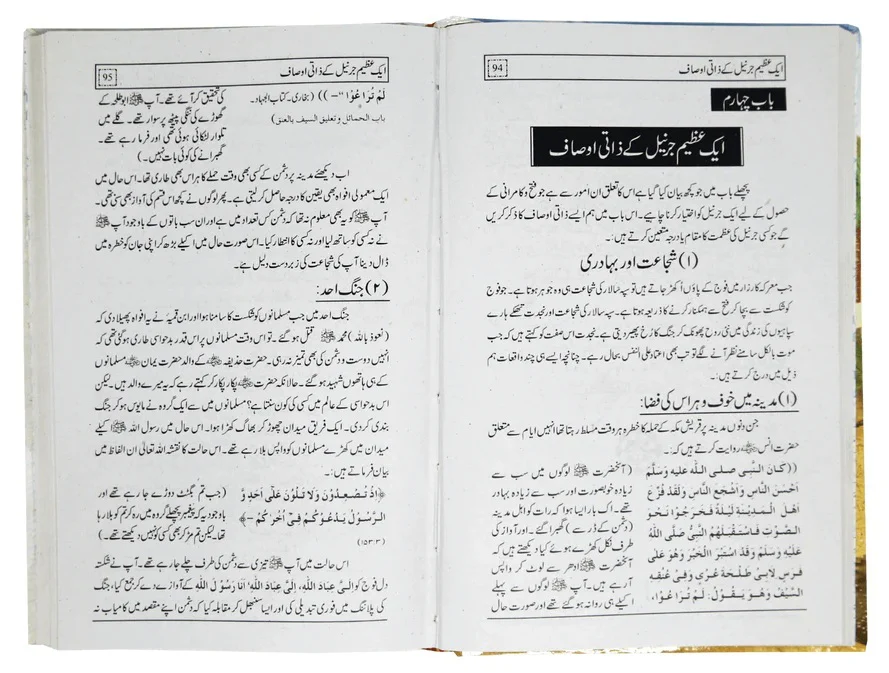 94
ایک عظیم جرنیل کے ذاتی اوصاف
باب چہارم
ایک عظیم جرنیل کے ذاتی اوصاف
پچھلے باب میں جو کچھ بیان کیا گیا ہے اس کا تعلق ان امور سے ہے جو فتح و کامرانی کے
حصول کے لیے ایک جرنیل کو اختیار کرنا چاہیے۔ اس باب میں ہم ایسے ذاتی اوصاف کا ذکر کریں
گے جو کسی جرنیل کی عظمت کا مقام یا درجہ متعین کرتے ہیں:۔
(۱) شجاعت اور بہادری
جب معرکہ کارزار میں فوج کے پاؤں اُکھڑ جاتے ہیں تو سپہ سالار کی شجاعت ہی وہ جوہر ہوتا ہے۔ جو فوج
کو شکست سے بچا کر فتح سے ہمکنار کرنے کا ذریعہ ہوتا ہے۔ سپہ سالار کی شجاعت اور نجدت تھکے ہارے
سپاہیوں کی زندگی میں نئی روح پھونک کر جنگ کا رُخ پھیر دیتی ہے۔ نجدت اس صفت کو کہتے ہیں کہ جب
موت بالکل سامنے نظر آنے لگے تو تب بھی اعتماد علی النفس بحال رہے۔ چنانچہ ایسے ہی چند واقعات ہم
ذیل میں درج کرتے ہیں:۔
(۱) مدینہ میں خوف و ہراس کی فضا:
جن دنوں مدینہ پر قریش مکہ کے حملہ کا خطرہ ہر وقت مسلط رہتا تھا انہیں ایام سے متعلق
حضرت انسؓ روایت کرتے ہیں کہ:۔
((كَانَ النَّبِى صلى اللّٰه عليه وَسَلَّمَ
اَحْسَنَ النَّاسِ وَاَشْجَعَ النَّاسِ وَلَقَدْ فَزِعَ
اَهْلُ الْمَدِيْنَةِ لَيْلَةً فَخَرَجُوْا نَحْوَ
الصَّوْتِ فَاسْتَقْبَلَهُمُ النَّبِىُّ صَلَّى اللّٰهُ
عَلَيْهِ وَسَلَّمَ وَقَدْ اسْتَبْرَ الْخَبْرَ وَهُوَ عَلٰى
فَرَسٍ لِاَبِىْ طَلْحَةَ عُرْىٍ وَفِىْ عُنُقِهِ
السَّيْفُ وَهُوَ يَقُوْلُ: لَمْ تُرَاعُوْا،
(آنحضرت ﷺ لوگوں میں سب سے
زیادہ خوبصورت اور سب سے زیادہ بہادر
تھے۔ اک بار ایسا ہوا کہ رات کو اہل مدینہ
(دشمن کے ڈر سے) گھبرا گئے۔ اور آواز کی
طرف نکل کھڑے ہوئے کیا دیکھتے ہیں کہ
آنحضرت ﷺ ادھر سے لوٹ کر واپس
آ رہے ہیں۔ آپ ﷺ لوگوں سے پہلے
اکیلے ہی روانہ ہو گئے تھے اور صورت حال
95
ایک عظیم جرنیل کے ذاتی اوصاف
لَمْ تُرَاعُوْا‘‘۔)) (بخاری۔ کتاب الجہاد۔
باب الحمائل و تعلیق السیف بالعنق)
کی تحقیق کر آئے تھے۔ آپ ﷺ ابو طلحہ کے
گھوڑے کی ننگی پیٹھ پر سوار تھے۔ گلے میں
تلوار لٹکائی ہوئی تھی اور فرما رہے تھے۔
گھبرانے کی کوئی بات نہیں۔)
اب دیکھئے مدینہ پر دشمن کے کسی بھی وقت حملے کا ہراس بھی طاری تھا۔ اس حال میں
ایک معمولی افواہ بھی یقین کا درجہ حاصل کر لیتی ہے۔ پھر لوگوں نے کچھ اس قسم کی آواز بھی سنی تھی۔
آپ ﷺ کو یہ بھی معلوم نہ تھا کہ دشمن کس تعداد میں ہے اور ان سب باتوں کے باوجود آپ ﷺ
نے نہ کسی کو ساتھ لیا اور نہ کسی کا انتظار کیا۔ اس صورت حال میں اکیلے بڑھ کر اپنی جان کو خطرہ میں
ڈال دینا آپ کی شجاعت کی زبردست دلیل ہے۔
(۲) جنگ احد:
جنگ احد میں جب مسلمانوں کو شکست کا سامنا ہوا اور ابن قمیہ نے یہ افواہ پھیلا دی کہ
(نعوذ باللہ) محمد ﷺ قتل ہو گئے۔ تو اس وقت مسلمانوں پر اس قدر بدحواسی طاری ہو گئی تھی کہ
انہیں دوست و دشمن کی بھی تمیز نہ رہی۔ حضرت حذیفہؓ کے والد حضرت یمانؓ مسلمانوں
کے ہی ہاتھوں شہید ہو گئے۔ حالانکہ حضرت پکار پکار کر کہتے رہے کہ یہ میرے والد ہیں۔ لیکن
اس بدحواسی کے عالم میں کسی کی کون سنتا ہے؟ مسلمانوں میں سے ایک گروہ نے مایوس ہو کر جنگ
بندی کر دی۔ ایک فریق میدان چھوڑ کر بھاگ کھڑا ہوا۔ اس حال میں رسول اللہ ﷺ اکیلے
میدان میں کھڑے مسلمانوں کو واپس بلا رہے تھے۔ اس حالت کا نقشہ اللہ تعالیٰ ان الفاظ میں
بیان فرماتے ہیں:۔
﴿اِذْ تُصْعِدُوْنَ وَلَا تَلْوٗنَ عَلٰٓى اَحَدٍ وَّ
الرَّسُوْلُ يَدْعُوْكُمْ فِىْٓ اُخْرٰكُمْ۔﴾
(۱۵۳:۳)
(جب تم بگٹٹ دوڑے جا رہے تھے اور
باوجود یہ کہ پیغمبر پچھلے گروہ میں رہ کر تم کو بلا رہا
تھا۔ لیکن تم مڑ کر بھی کسی کو نہیں دیکھتے تھے۔)
اس حالت میں آپ ﷺ تیزی سے دشمن کی طرف چلے جا رہے تھے۔ آپ نے شکستہ
دل فوج کو اِلَىَّ عِبَادَ اللّٰهِ، اِلَىَّ عِبَادَ اللّٰهِ، اَنَا رَسُوْلُ اللّٰهِ کے آوازے دے کر جمع کیا، جنگ
کی پلاننگ میں فوری تبدیلی کی اور ایسا سنبھل کر مقابلہ کیا کہ دشمن اپنے مقصد میں کامیاب نہ